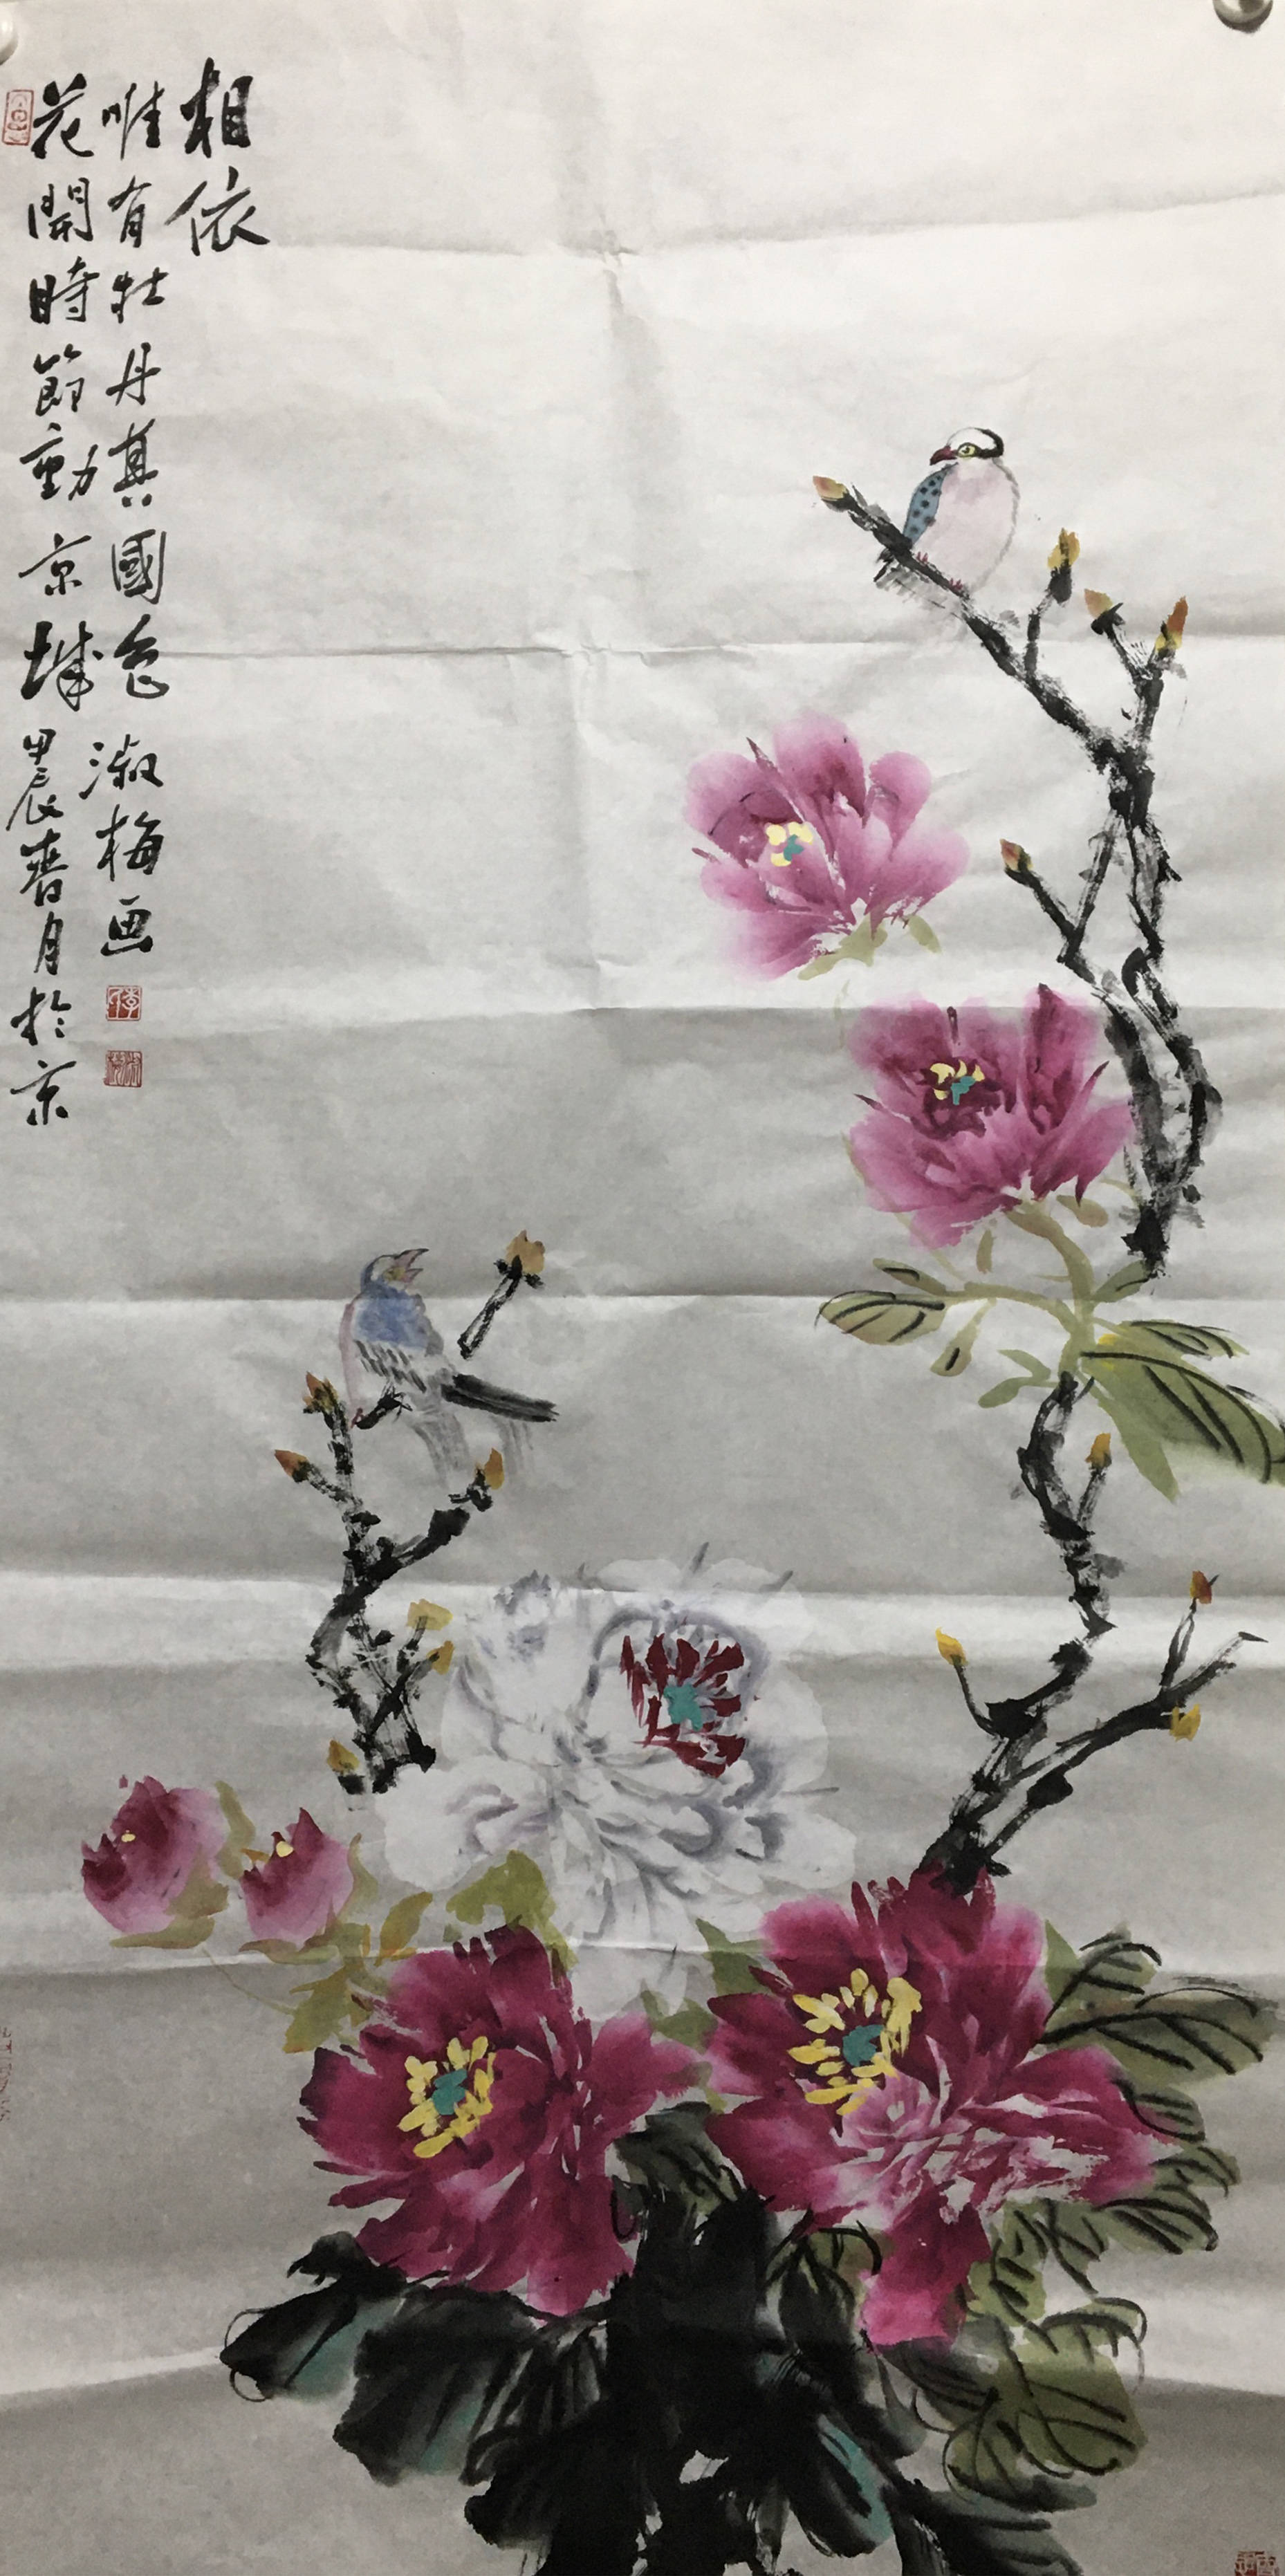 相依
唯有牡丹真國色 淑梅画
花開時節動京城 甲辰春月於京